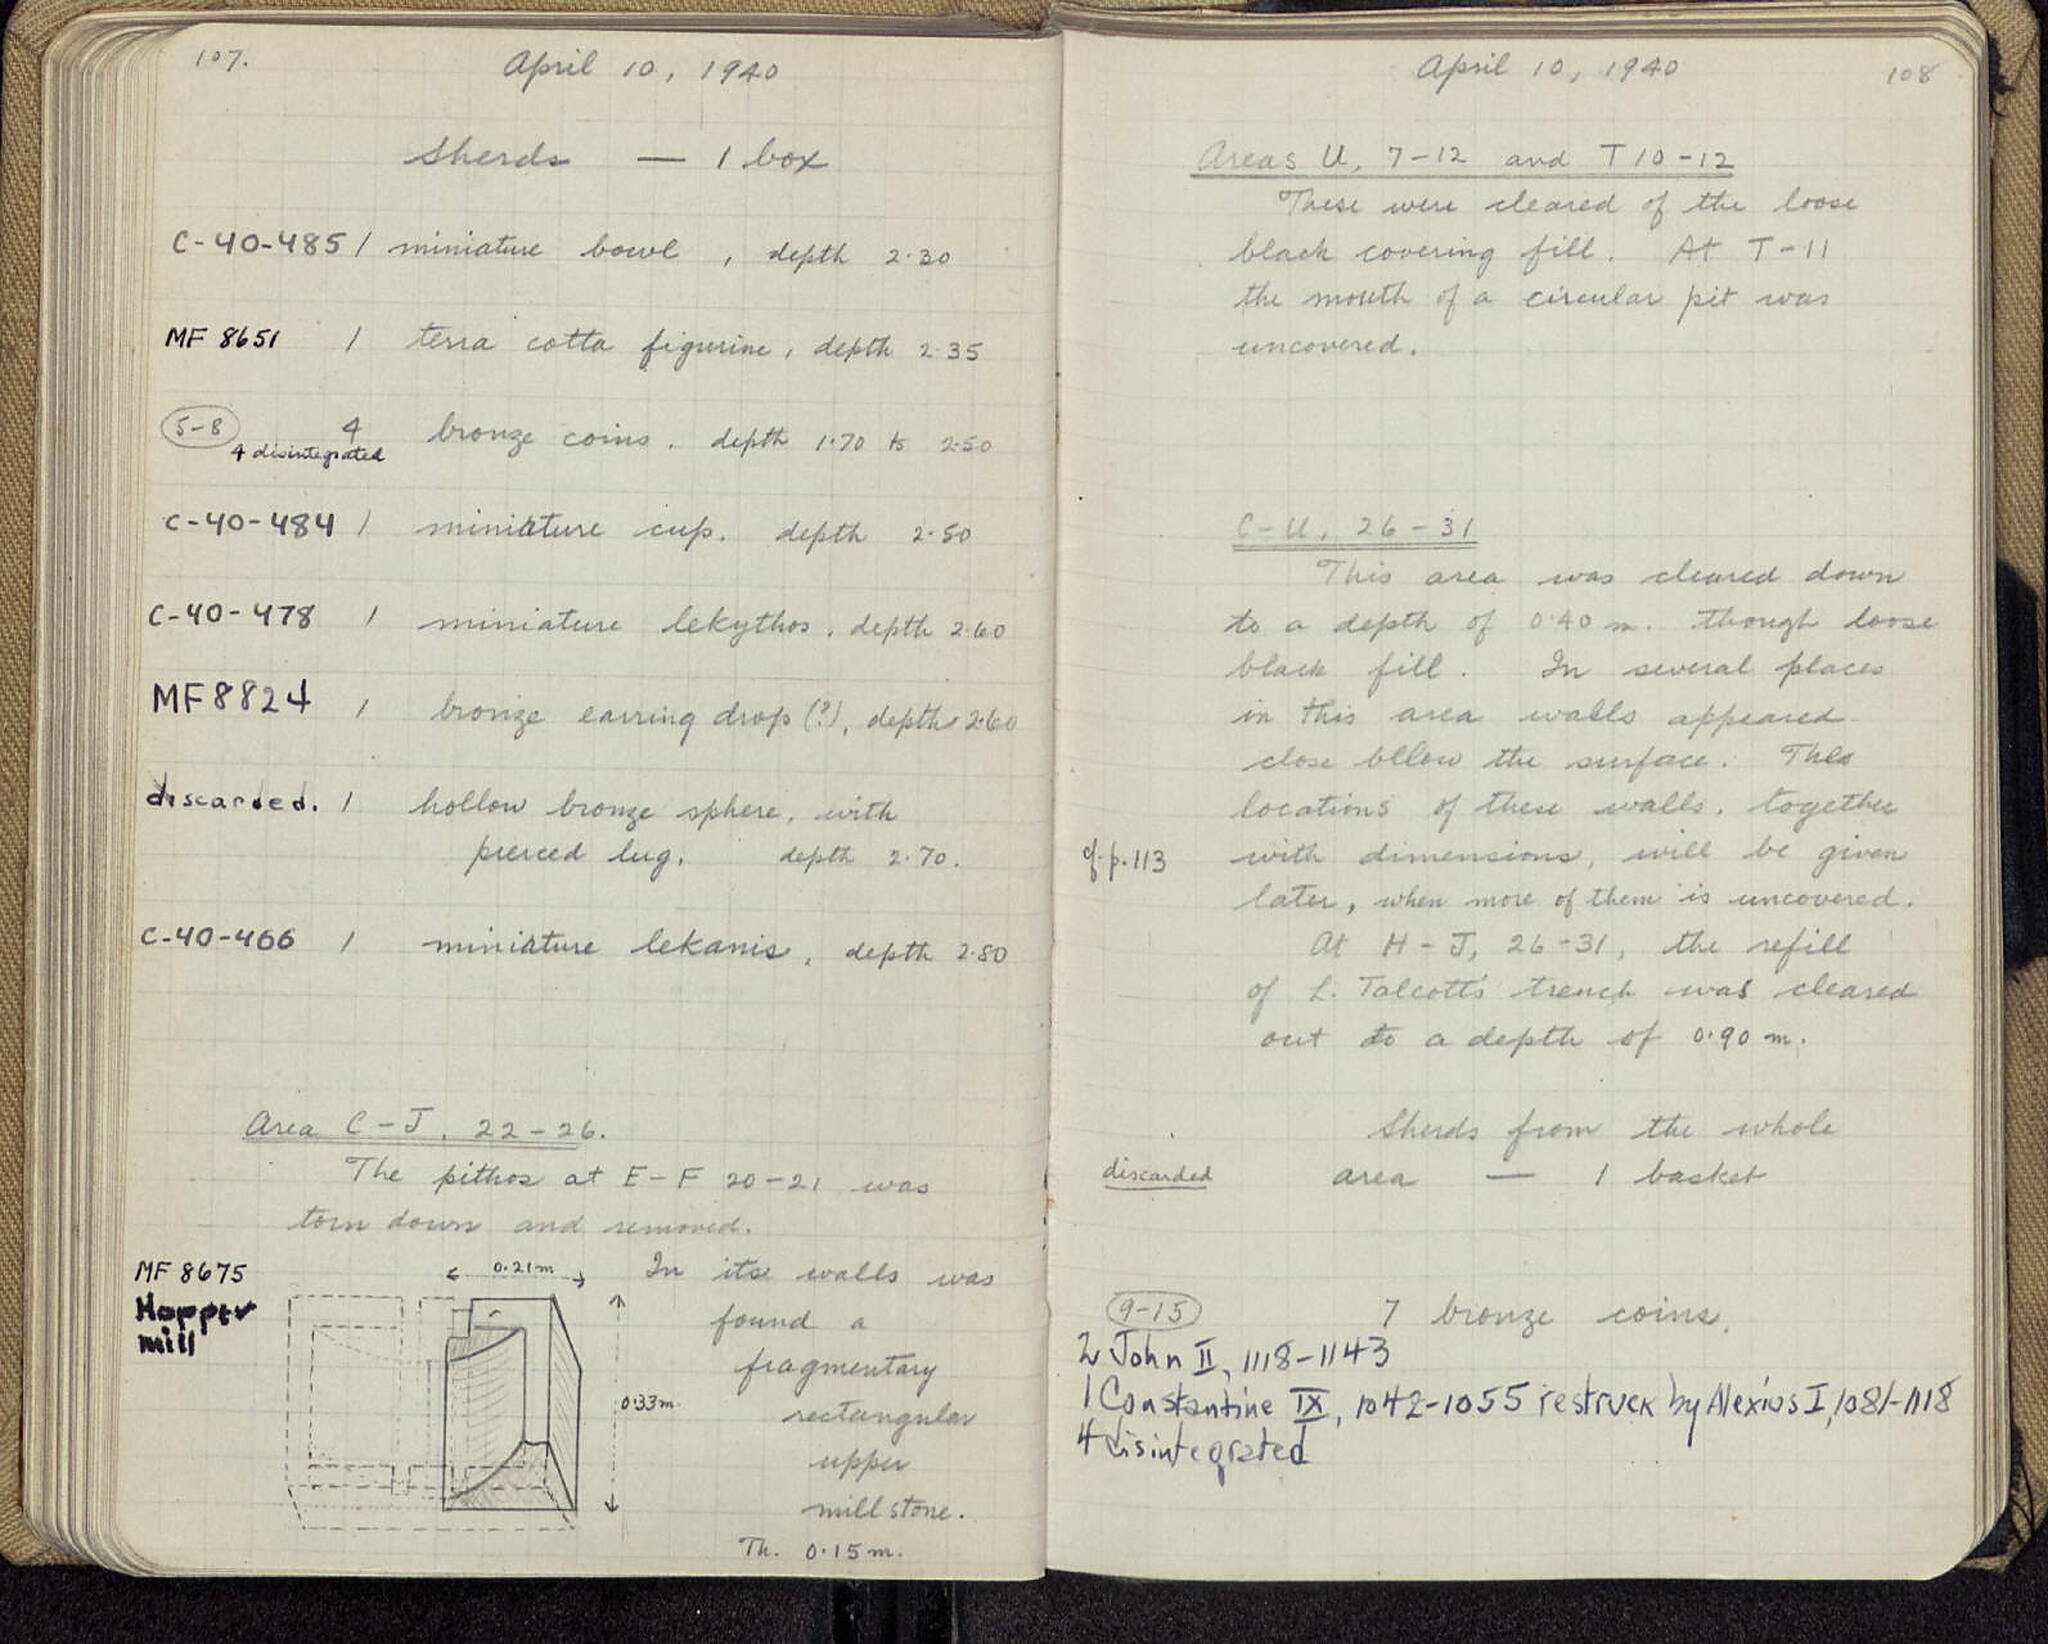 107.
April 10, 1940
Sherds — 1 box
C-40-485 1 miniature bowl, depth 2.30
MF 8651 1 terra cotta figurine, depth 2.35
5-8 4 bronze coins. depth 1.70 to 2.50
4 disintegrated
C-40-484 1 miniature cup. depth 2.50
C-40-478 1 miniature lekythos, depth 2.60
MF8824 1 bronze earring drop (?), depth 2.60
discarded. 1 hollow bronze sphere, with
pierced lug. depth 2.70.
C-40-466 1 miniature lekanis, depth 2.80
Area C-J, 22-26.
The pithos at E-F 20-21 was
torn down and removed.
MF 8675
Hopper
mill
0.21m
0.33m.
In its walls was
found a
fragmentary
rectangular
upper
mill stone.
Th. 0.15 m.
April 10, 1940
108
Areas U, 7-12 and T 10-12
These were cleared of the loose
black covering fill. At T-11
the mouth of a circular pit was
uncovered.
C-U, 26-31
This area was cleared down
to a depth of 0.40 m. though loose
black fill. In several places
in this area walls appeared
close bllow the surface. Thes
locations of these walls, together
cf. p. 113 with dimensions, will be given
later, when more of them is uncovered.
At H-J, 26-31, the refill
of L. Talcott's trench was cleared
out to a depth of 0.90 m.
Sherds from the whole
discarded area — 1 basket
9-15 7 bronze coins.
2 John II, 1118-1143
1 Constantine IX, 1042-1055 restruck by Alexius I, 1081-1118
4 disintegrated